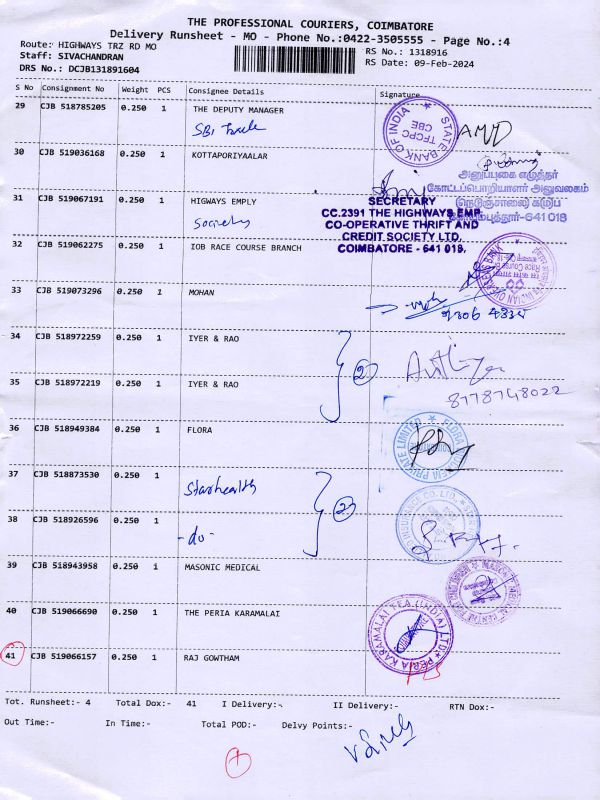 THE PROFESSIONAL COURIERS, COIMBATORE
Delivery Runsheet - MO - Phone No.:0422-3505555 - Page No.:4
Route: HIGHWAYS TRZ RD MO
Staff: SIVACHANDRAN
DRS No.: DCJB131891604
RS No.: 1318916
RS Date: 09-Feb-2024
S No Consignment No Weight PCS Consignee Details Signature
29 CJB 518785205 0.250 1 THE DEPUTY MANAGER
SBI
STATE BANK OF INDIA
TFCPC
CBE
30 CJB 519036168 0.250 1 KOTTAPORIYAALAR
அனுப்புகை எழுத்தர்
கோட்டப்பொறியாளர் அலுவலகம்
(நெடுஞ்சாலை)
641 018
31 CJB 519067191 0.250 1 HIGWAYS EMPLY
Society
SECRETARY
CC.2391 THE HIGHWAYS EMP.
CO-OPERATIVE THRIFT AND
CREDIT SOCIETY LTD.
COIMBATORE - 641 018.
32 CJB 519062275 0.250 1 IOB RACE COURSE BRANCH
INDIAN OVERSEAS BANK
33 CJB 519073296 0.250 1 MOHAN
34 CJB 518972259 0.250 1 IYER & RAO
2
35 CJB 518972219 0.250 1 IYER & RAO
8778748022
36 CJB 518949384 0.250 1 FLORA
FLORA
PRIVATE LIMITED
37 CJB 518873530 0.250 1
Starhealth
2
38 CJB 518926596 0.250 1
-do-
CO. LTD.
39 CJB 518943958 0.250 1 MASONIC MEDICAL
40 CJB 519066690 0.250 1 THE PERIA KARAMALAI
PERIA KARAMALAI TEA (INDIA) LTD
41 CJB 519066157 0.250 1 RAJ GOWTHAM
Tot. Runsheet:- 4 Total Dox:- 41 I Delivery:- II Delivery:- RTN Dox:-
Out Time:- In Time:- Total POD:- Delvy Points:-